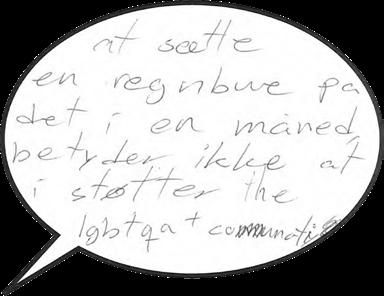 at sætte
en regnbue på
det i en måned,
betyder ikke at
i støtter the
lgbtqa+ communati